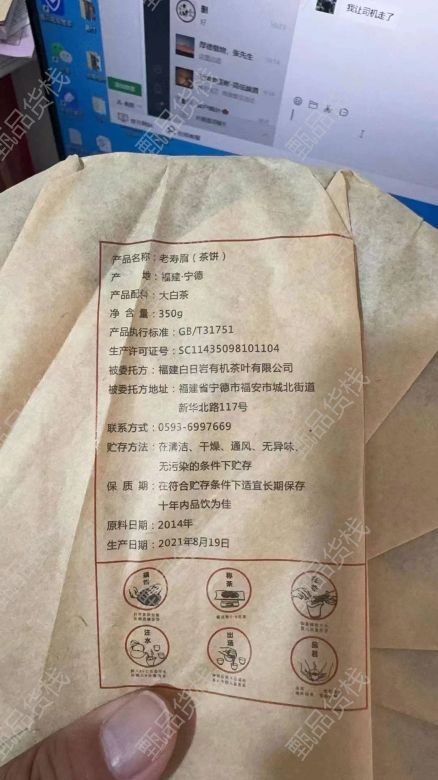 删
好
厚德载物，张先生
我让司机走了
产品名称：老寿眉（茶饼）
产 地：福建·宁德
产品配料：大白茶
净 含 量：350g
产品执行标准：GB/T31751
生产许可证号：SC11435098101104
被委托方：福建白日岩有机茶叶有限公司
被委托方地址：福建省宁德市福安市城北街道
新华北路117号
联系方式：0593-6997669
贮存方法：在清洁、干燥、通风、无异味、
无污染的条件下贮存
保 质 期：在符合贮存条件下适宜长期保存
十年内品饮为佳
原料日期：2014年
生产日期：2021年8月19日
称茶
注水
出汤
品茗
甄品货栈